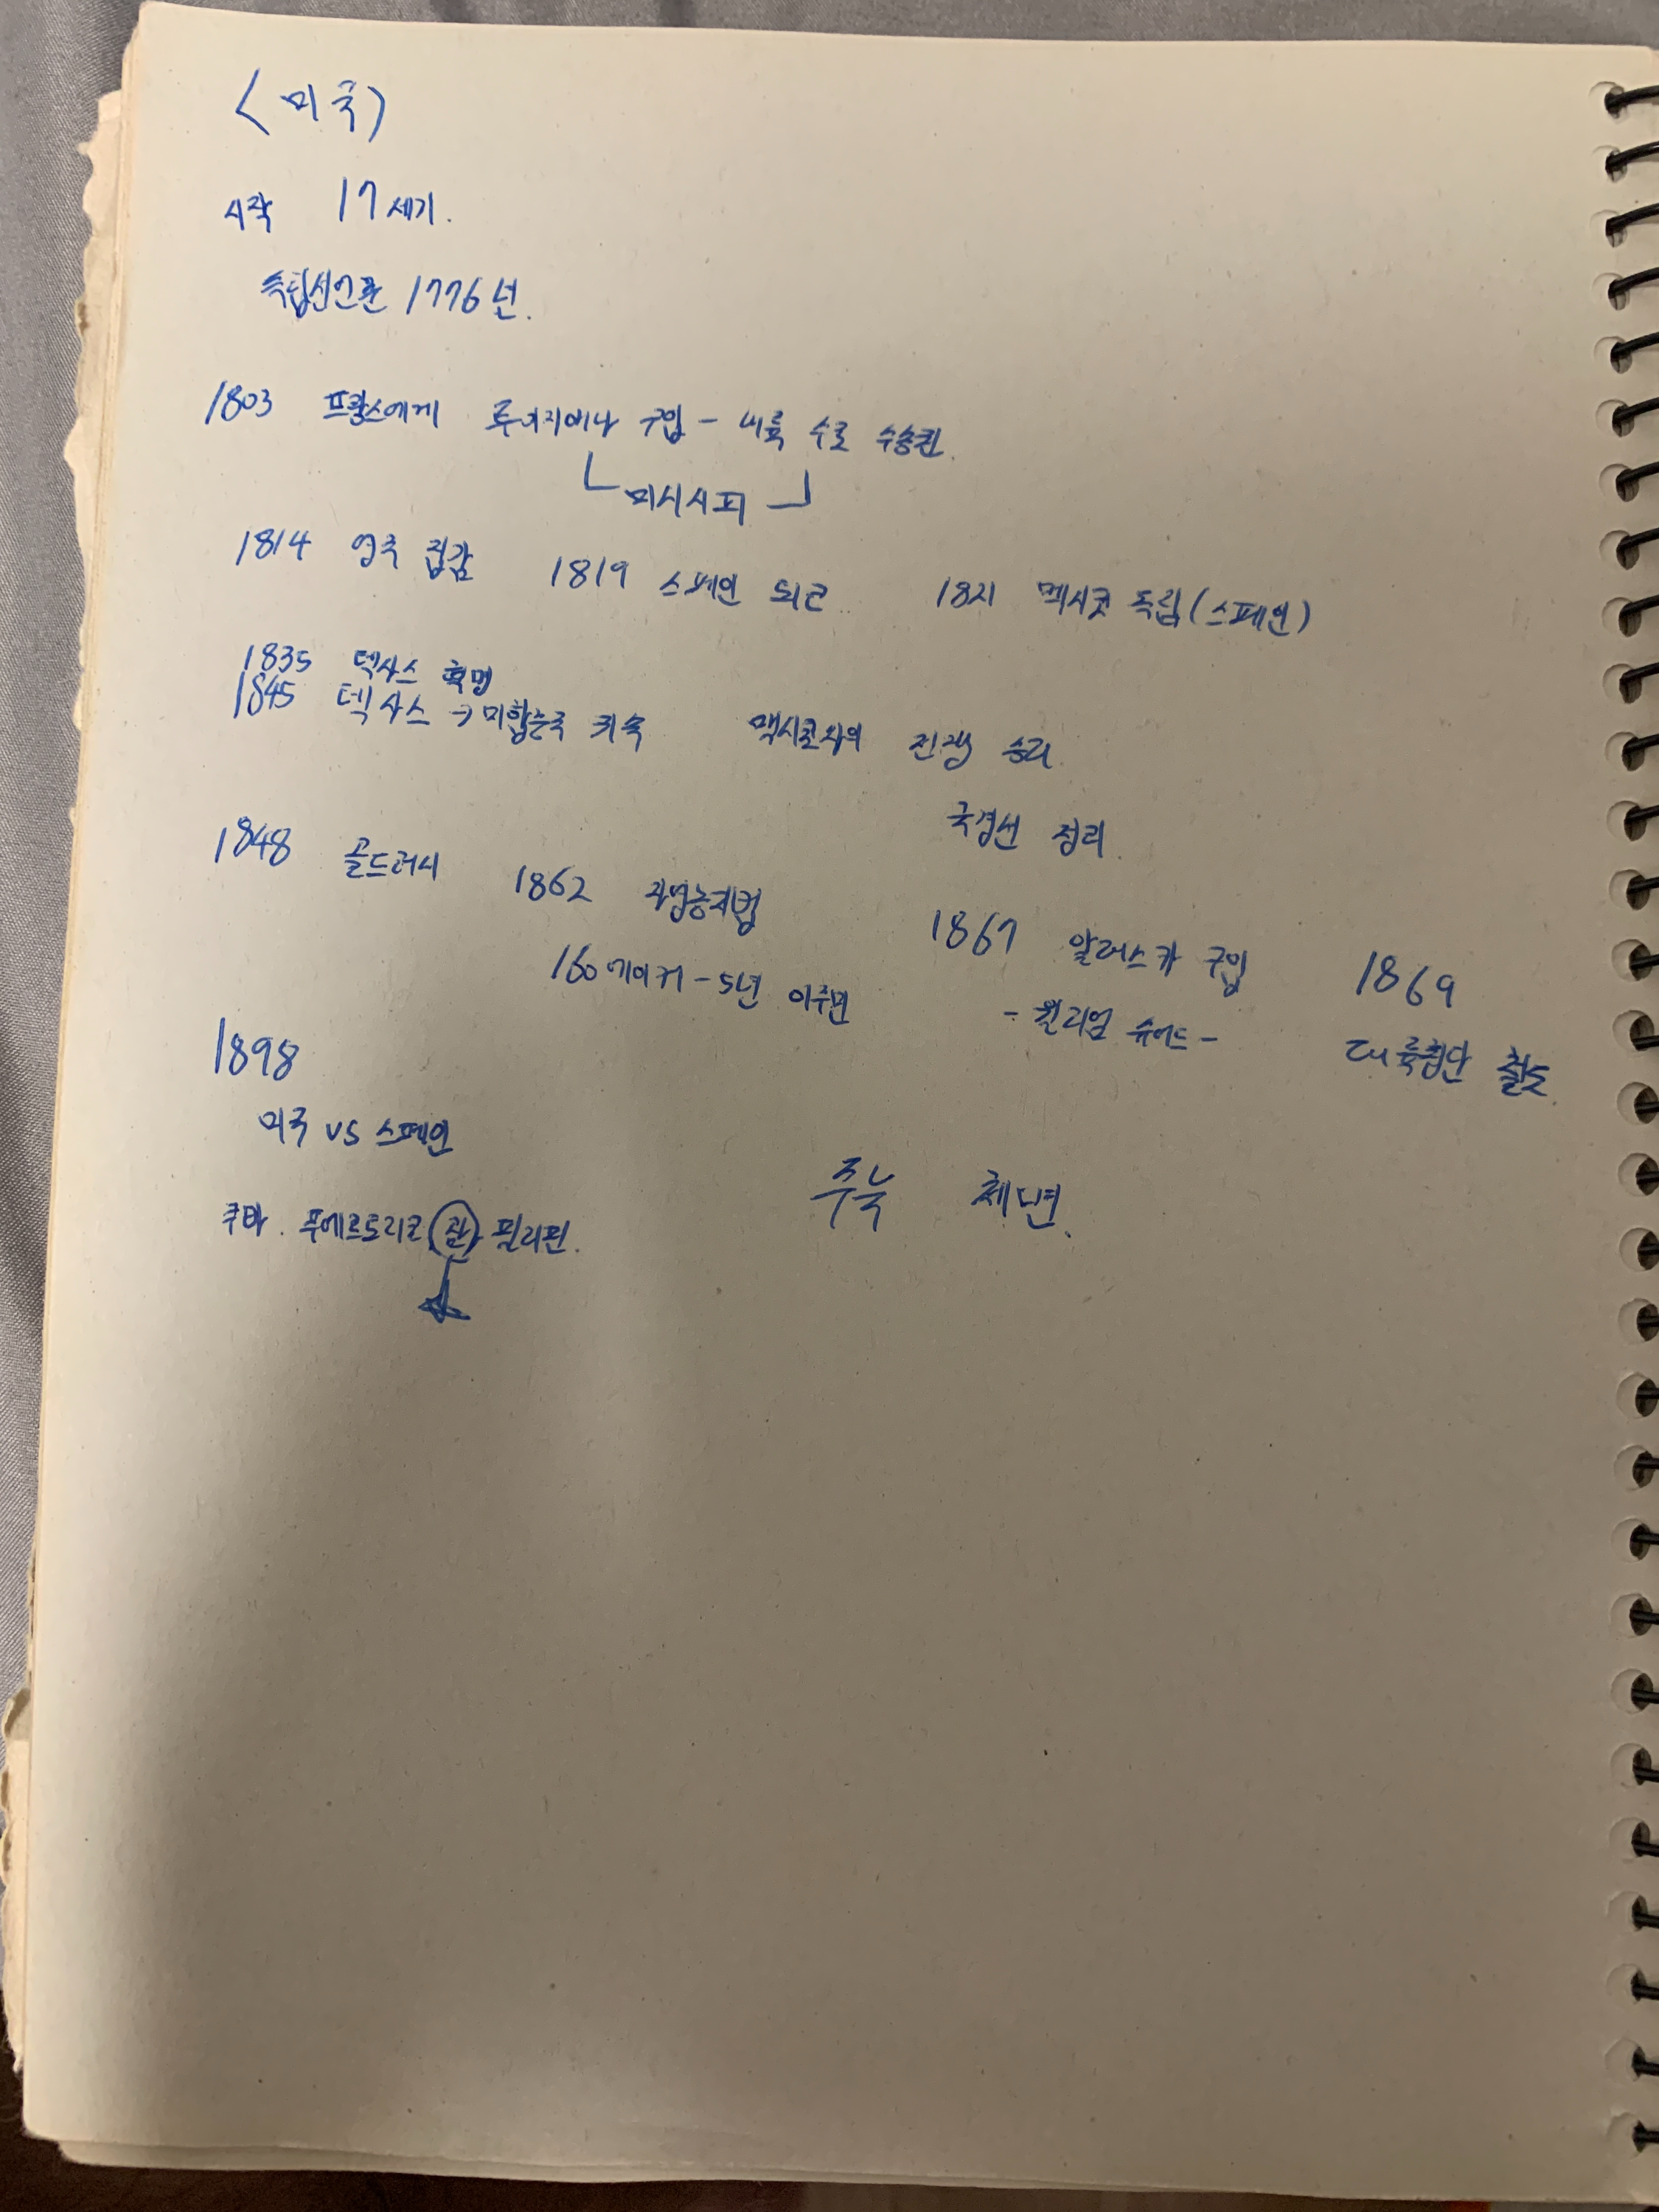 <미국>
시작 17세기.
독립선언문 1776년.
1803 프랑스에게 루이지애나 구입 - 내륙 수로 수송권.
미시시피
1814 영국 1819 스페인 1821 멕시코 독립(스페인)
1835 텍사스 혁명
1845 텍사스 → 미합중국 귀속 멕시코와의 전쟁 승리.
국경선 정리.
1848 골드러시 1862 자영농지법 1867 알래스카 구입 1869
160에이커 - 5년 이주면 - 윌리엄 슈어드 - 대륙횡단 철도.
1898
미국 VS 스페인
쿠바. 푸에르토리코 괌 필리핀.
주눅 체념.